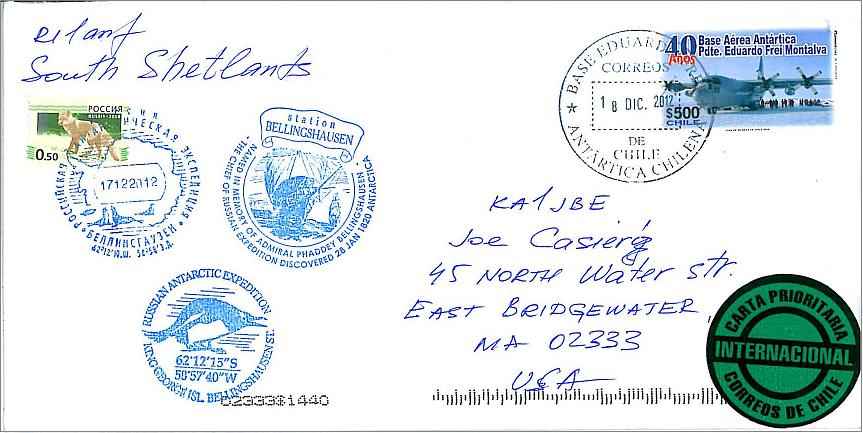 RI1ANF
South Shetlands
РОССИЯ
RUSSIA
0.50
РОССИЙСКАЯ АНТАРКТИЧЕСКАЯ ЭКСПЕДИЦИЯ
17122012
БЕЛЛИНСГАУЗЕН
station
BELLINGSHAUSEN
NAMED IN MEMORY OF ADMIRAL PHADDEY BELLINGSHAUSEN
-THE CHIEF OF RUSSIAN EXPEDITION DISCOVERED 28 JAN 1820 ANTARCTICA
RUSSIAN ANTARCTIC EXPEDITION
62°12'15"S
58°57'40"W
KING GEORGE ISL. BELLINGSHAUSEN ST.
02333$1440
BASE EDUARDO FREI
CORREOS
18 DIC. 2012
DE
CHILE
ANTÁRTICA CHILENA
40
Años
Base Aérea Antártica
Pdte. Eduardo Frei Montalva
$500
CHILE
KA1JBE
Joe
45 NORTH Water str.
EAST BRIDGEWATER,
MA 02333
USA
CARTA PRIORITARIA
INTERNACIONAL
CORREOS DE CHILE